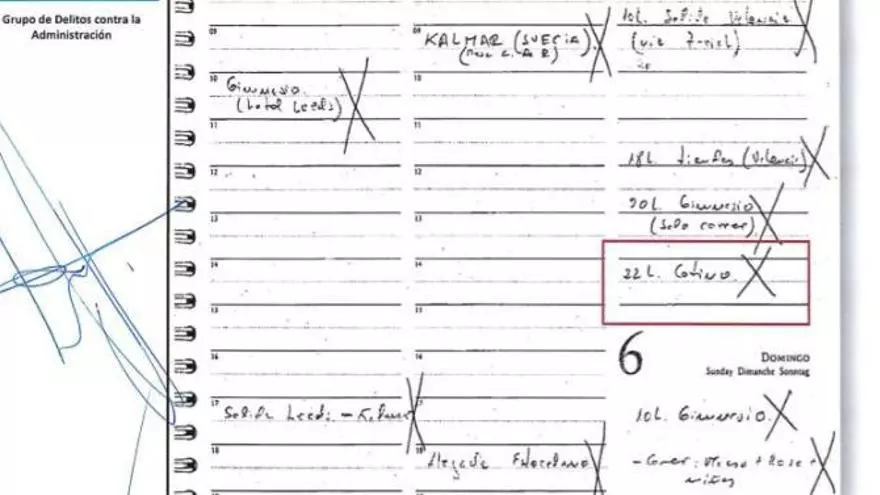 Grupo de Delitos contra la
Administración
09
10
Gimnasio
(hotel Leeds)
11
12
13
14
15
16
17
Salida Leeds - Kalmar
18
09
KALMAR (SUECIA)
10
11
12
13
14
15
16
17
18
Llegada
10h. Salida Valencia
18h. tiendas (Valencia)
20h. Gimnasio
(solo correr)
22h. Cotino
6
DOMINGO
Sunday Dimanche Sonntag
10h. Gimnasio
- Comer: + Rosa +
niños